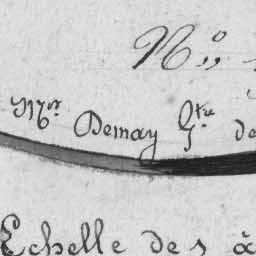 N.º
Mgr Demay Gtre de
Echelle des à